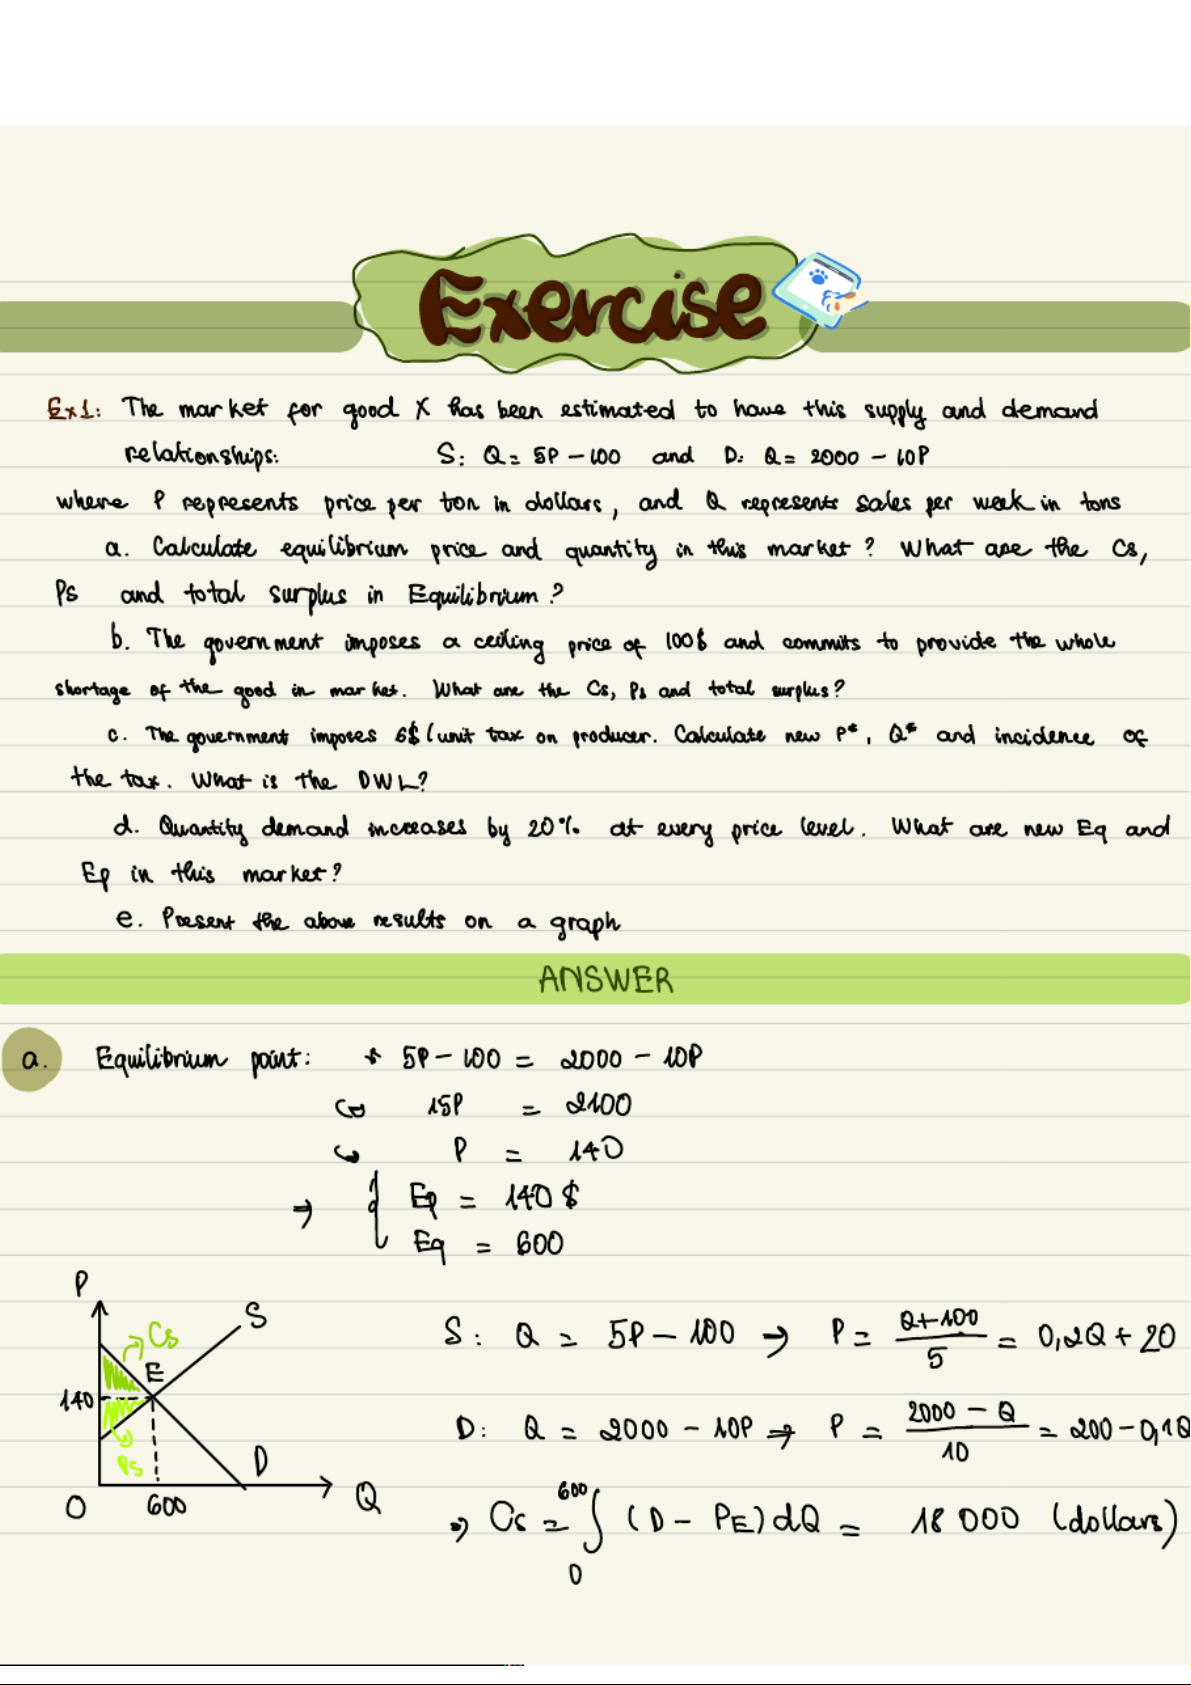 Exercise
Ex1: The market for good X has been estimated to have this supply and demand
relationships: S: Q = 5P - 100 and D: Q = 2000 - 10P
where P represents price per ton in dollars, and Q represents sales per week in tons
a. Calculate equilibrium price and quantity in this market? What are the Cs,
Ps and total surplus in Equilibrium?
b. The government imposes a ceiling price of 100$ and commits to provide the whole
shortage of the good in market. What are the Cs, Ps and total surplus?
c. The government imposes 6$/unit tax on producer. Calculate new P*, Q* and incidence of
the tax. What is the DWL?
d. Quantity demand increases by 20% at every price level. What are new Eq and
Ep in this market?
e. Present the above results on a graph
ANSWER
a. Equilibrium point: * 5P - 100 = 2000 - 10P
⇔ 15P = 2100
⇔ P = 140
⇒ { Ep = 140 $
Eq = 600
P
S
Cs
E
140
Ps
D
O 600 Q
S: Q = 5P - 100 ⇒ P = (Q+100)/5 = 0,2Q + 20
D: Q = 2000 - 10P ⇒ P = (2000 - Q)/10 = 200 - 0,1Q
⇒ Cs = ∫ 600 0 (D - PE) dQ = 18 000 (dollars)